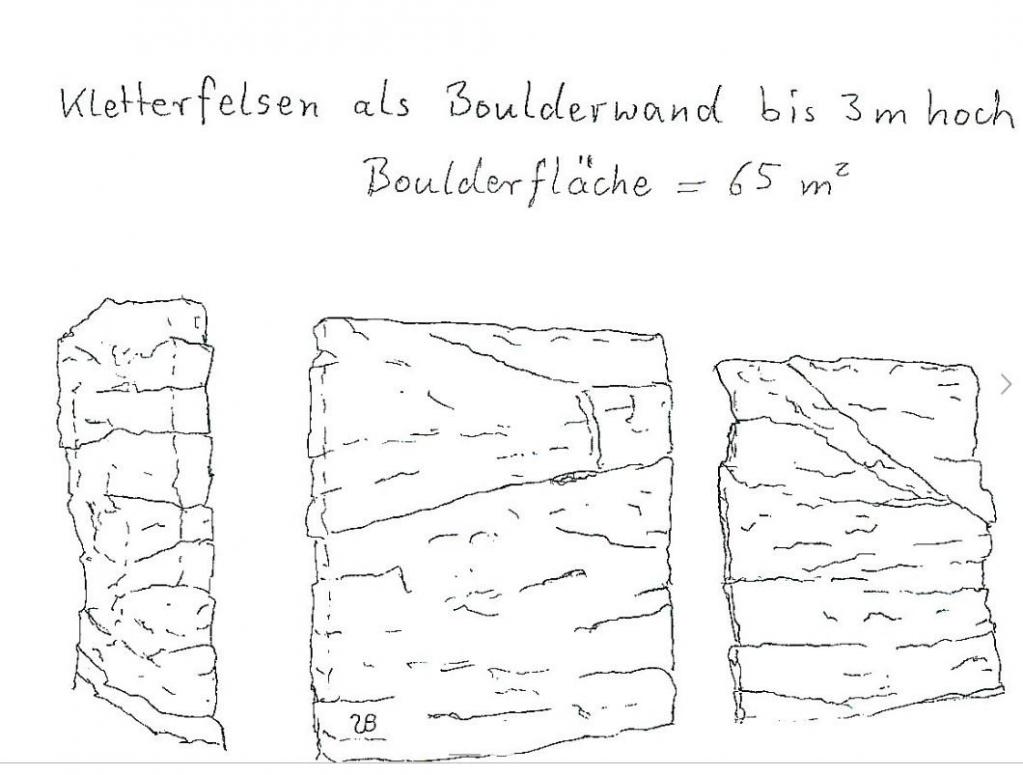 Kletterfelsen als Boulderwand bis 3m hoch
Boulderfläche = 65 m²